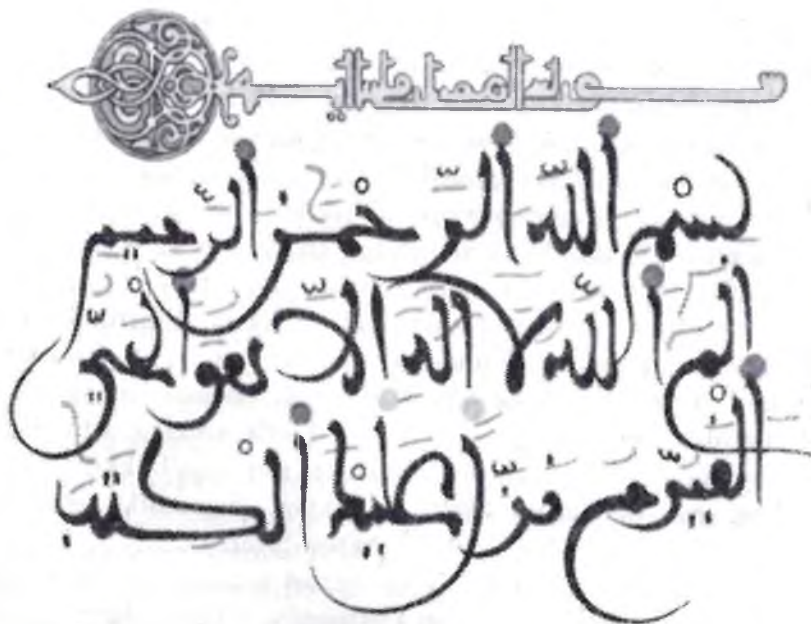 بسْم اللّه الرّحْمٰن الرّحيم
الم اللّه لا اله الّا هو الْحيّ
الْقيّوم نزّل عليْك الْكتٰب